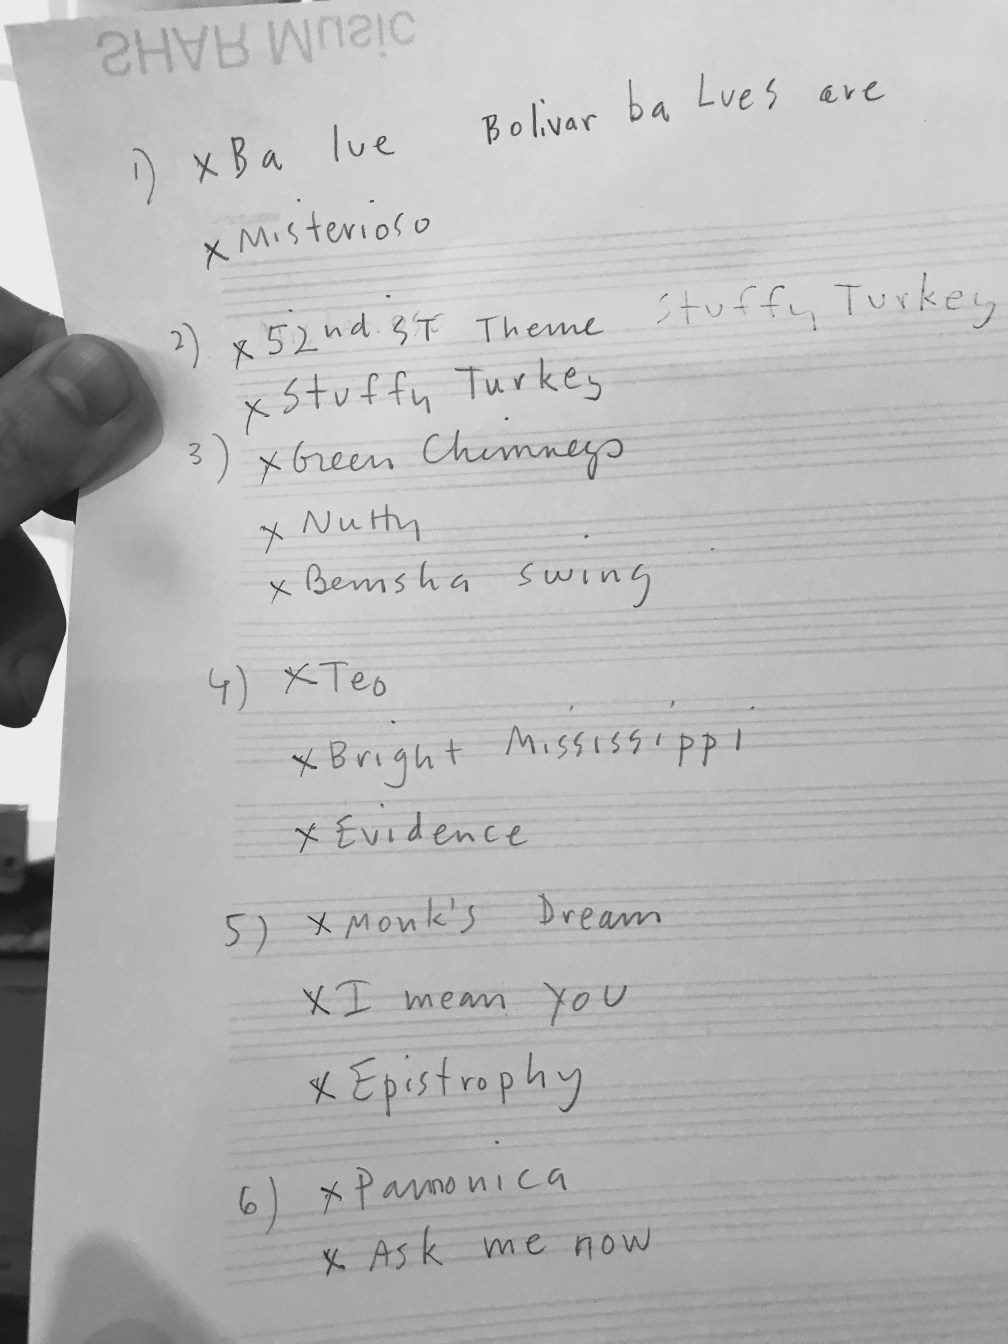 SHAR Music
1) x Ba lue Bolivar ba Lues are
x Misterioso
2) x 52nd ST Theme Stuffy Turkey
x Stuffy Turkey
3) x Green Chimneys
x Nutty
x Bemsha swing
4) x Teo
x Bright Mississippi
x Evidence
5) x Monk's Dream
x I mean you
x Epistrophy
6) x Pannonica
x Ask me now